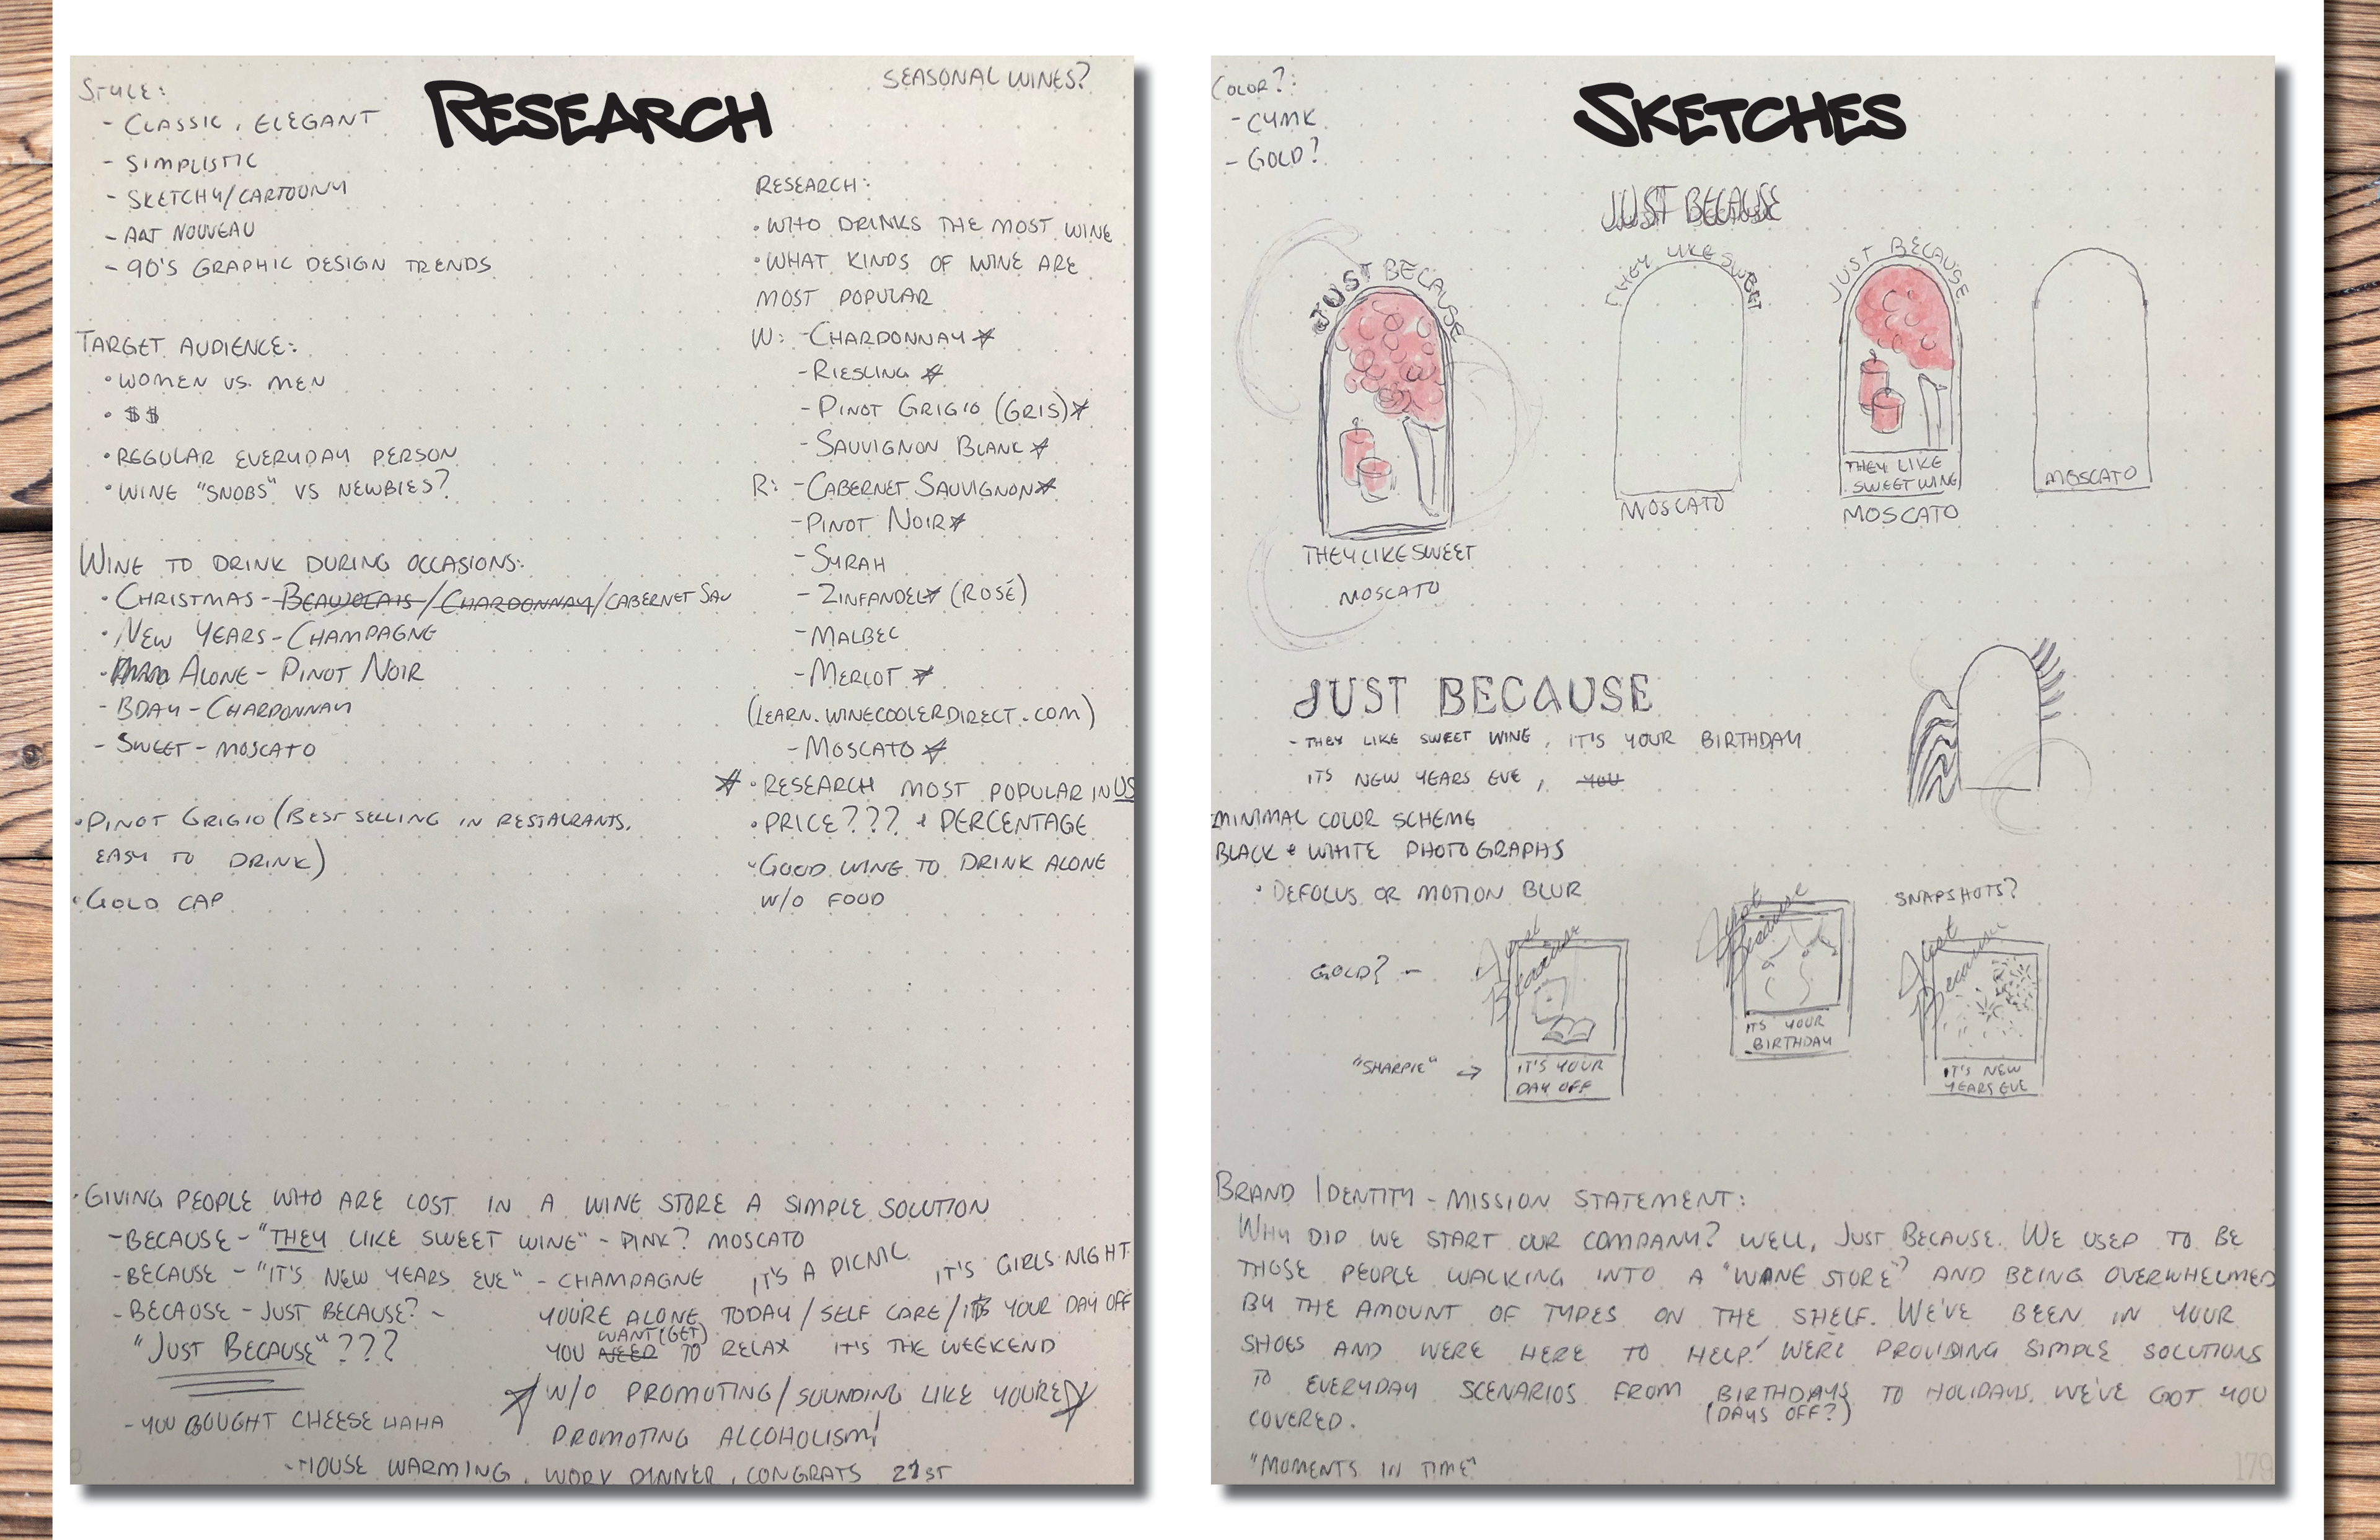 RESEARCH
SEASONAL WINES?
STYLE:
- CLASSIC, ELEGANT
- SIMPLISTIC
- SKETCHY/CARTOONY
- ART NOUVEAU
- 90'S GRAPHIC DESIGN TRENDS
TARGET AUDIENCE:
• WOMEN VS. MEN
• $$
• REGULAR EVERYDAY PERSON
• WINE "SNOBS" VS NEWBIES?
WINE TO DRINK DURING OCCASIONS:
• CHRISTMAS - BEAUJOLAIS/CHARDONNAY/CABERNET SAU
• NEW YEARS - CHAMPAGNE
• ALONE - PINOT NOIR
- BDAY - CHARDONNAY
- SWEET - MOSCATO
• PINOT GRIGIO (BEST SELLING IN RESTAURANTS.
EASY TO DRINK)
• GOLD CAP
RESEARCH:
• WHO DRINKS THE MOST WINE
• WHAT KINDS OF WINE ARE
MOST POPULAR
W: - CHARDONNAY ☆
- RIESLING ☆
- PINOT GRIGIO (GRIS) ☆
- SAUVIGNON BLANC ☆
R: - CABERNET SAUVIGNON ☆
- PINOT NOIR ☆
- SYRAH
- ZINFANDEL ☆ (ROSÉ)
- MALBEC
- MERLOT ☆
(LEARN.WINECOOLERDIRECT.COM)
- MOSCATO ☆
☆ • RESEARCH MOST POPULAR IN US
• PRICE??? + PERCENTAGE
• GOOD WINE TO DRINK ALONE
W/O FOOD
• GIVING PEOPLE WHO ARE LOST IN A WINE STORE A SIMPLE SOLUTION
- BECAUSE - "THEY LIKE SWEET WINE" - PINK? MOSCATO
- BECAUSE - "IT'S NEW YEARS EVE" - CHAMPAGNE IT'S A PICNIC IT'S GIRLS NIGHT
- BECAUSE - JUST BECAUSE? - YOU'RE ALONE TODAY / SELF CARE / IT'S YOUR DAY OFF
"JUST BECAUSE"???
WANT (GET)
YOU NEED TO RELAX IT'S THE WEEKEND
☆ W/O PROMOTING/SOUNDING LIKE YOURE ☆
PROMOTING ALCOHOLISM!
- YOU BOUGHT CHEESE HAHA
- HOUSE WARMING, WORK DINNER, CONGRATS 21ST
SKETCHES
COLOR?:
- CYMK
- GOLD?
JUST BECAUSE
JUST BECAUSE
THEY LIKE SWEET
MOSCATO
THEY LIKE SWEET
MOSCATO
JUST BECAUSE
THEY LIKE
SWEET WINE
MOSCATO
MOSCATO
JUST BECAUSE
- THEY LIKE SWEET WINE, IT'S YOUR BIRTHDAY
ITS NEW YEARS EVE, YOU
MINIMAL COLOR SCHEME
BLACK + WHITE PHOTOGRAPHS
• DEFOCUS OR MOTION BLUR
SNAPSHOTS?
GOLD? -
Just Because
"SHARPIE" →
IT'S YOUR
DAY OFF
Just Because
ITS YOUR
BIRTHDAY
Just Because
IT'S NEW
YEARS EVE
BRAND IDENTITY - MISSION STATEMENT:
WHY DID WE START OUR COMPANY? WELL, JUST BECAUSE. WE USED TO BE
THOSE PEOPLE WALKING INTO A "WINE STORE" AND BEING OVERWHELMED
BY THE AMOUNT OF TYPES ON THE SHELF. WE'VE BEEN IN YOUR
SHOES AND WERE HERE TO HELP! WE'RE PROVIDING SIMPLE SOLUTIONS
TO EVERYDAY SCENARIOS FROM BIRTHDAYS TO HOLIDAYS. WE'VE GOT YOU
(DAYS OFF?)
COVERED.
"MOMENTS IN TIME"
179